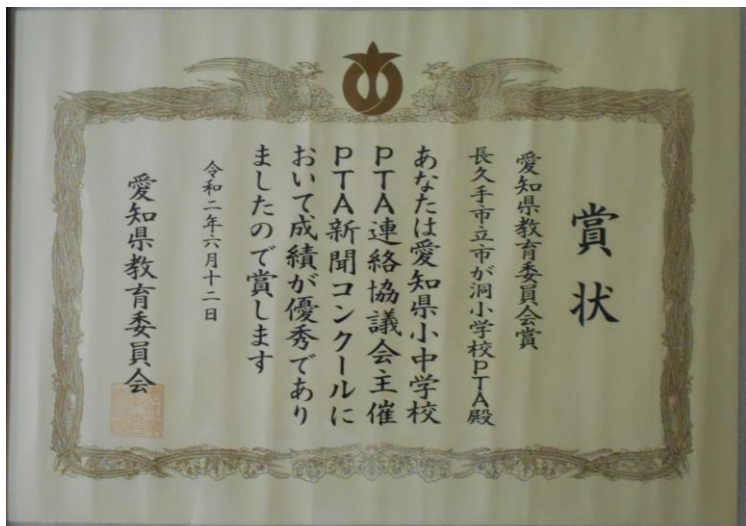 賞状
愛知県教育委員会賞
長久手市立市が洞小学校PTA殿
あなたは愛知県小中学校
PTA連絡協議会主催
PTA新聞コンクールに
おいて成績が優秀であり
ましたので賞します
令和二年六月十二日
愛知県教育委員会